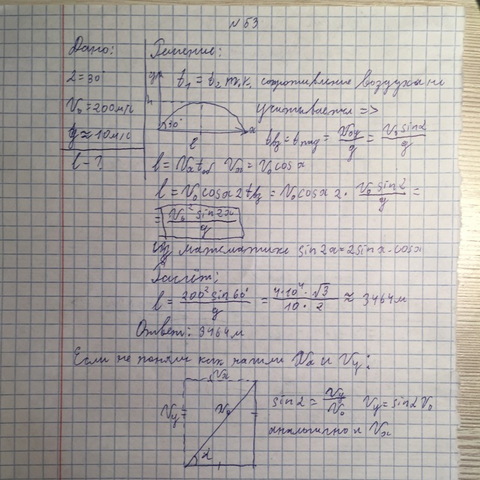 №53
Дано:
Решение:
α=30°
V₀=200м/с
g≈10м/с
l-?
y
t₁=t₂ т.к. сопротивление воздуха не
учитывается =>
h
30°
x
l
tвз=tпад=V₀y/g=V₀sinα/g
l=Vₓt Vₓ=V₀cosα
l=V₀cosα2tвз=V₀cosα2·V₀sinα/g=
=V₀²sin2α/g
Из математики sin2α=2sinα·cosα
Расчёт:
l=200²sin60°/g=4·10⁴·√3/10·2≈3464м
Ответ: 3464м
Если не поняли как нашли Vₓ и Vy:
Vₓ
Vy
V₀
α
sinα=Vy/V₀ Vy=sinαV₀
аналогично и Vₓ